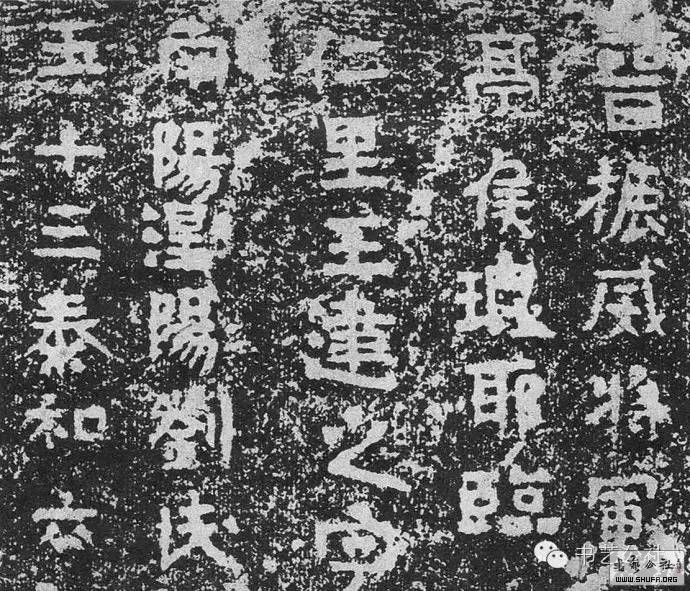 晉振威將軍
亭侯琅耶臨
仁里王建之字
南陽涅陽劉氏
五十三泰和六
书艺公社
WWW.SHUFA.ORG